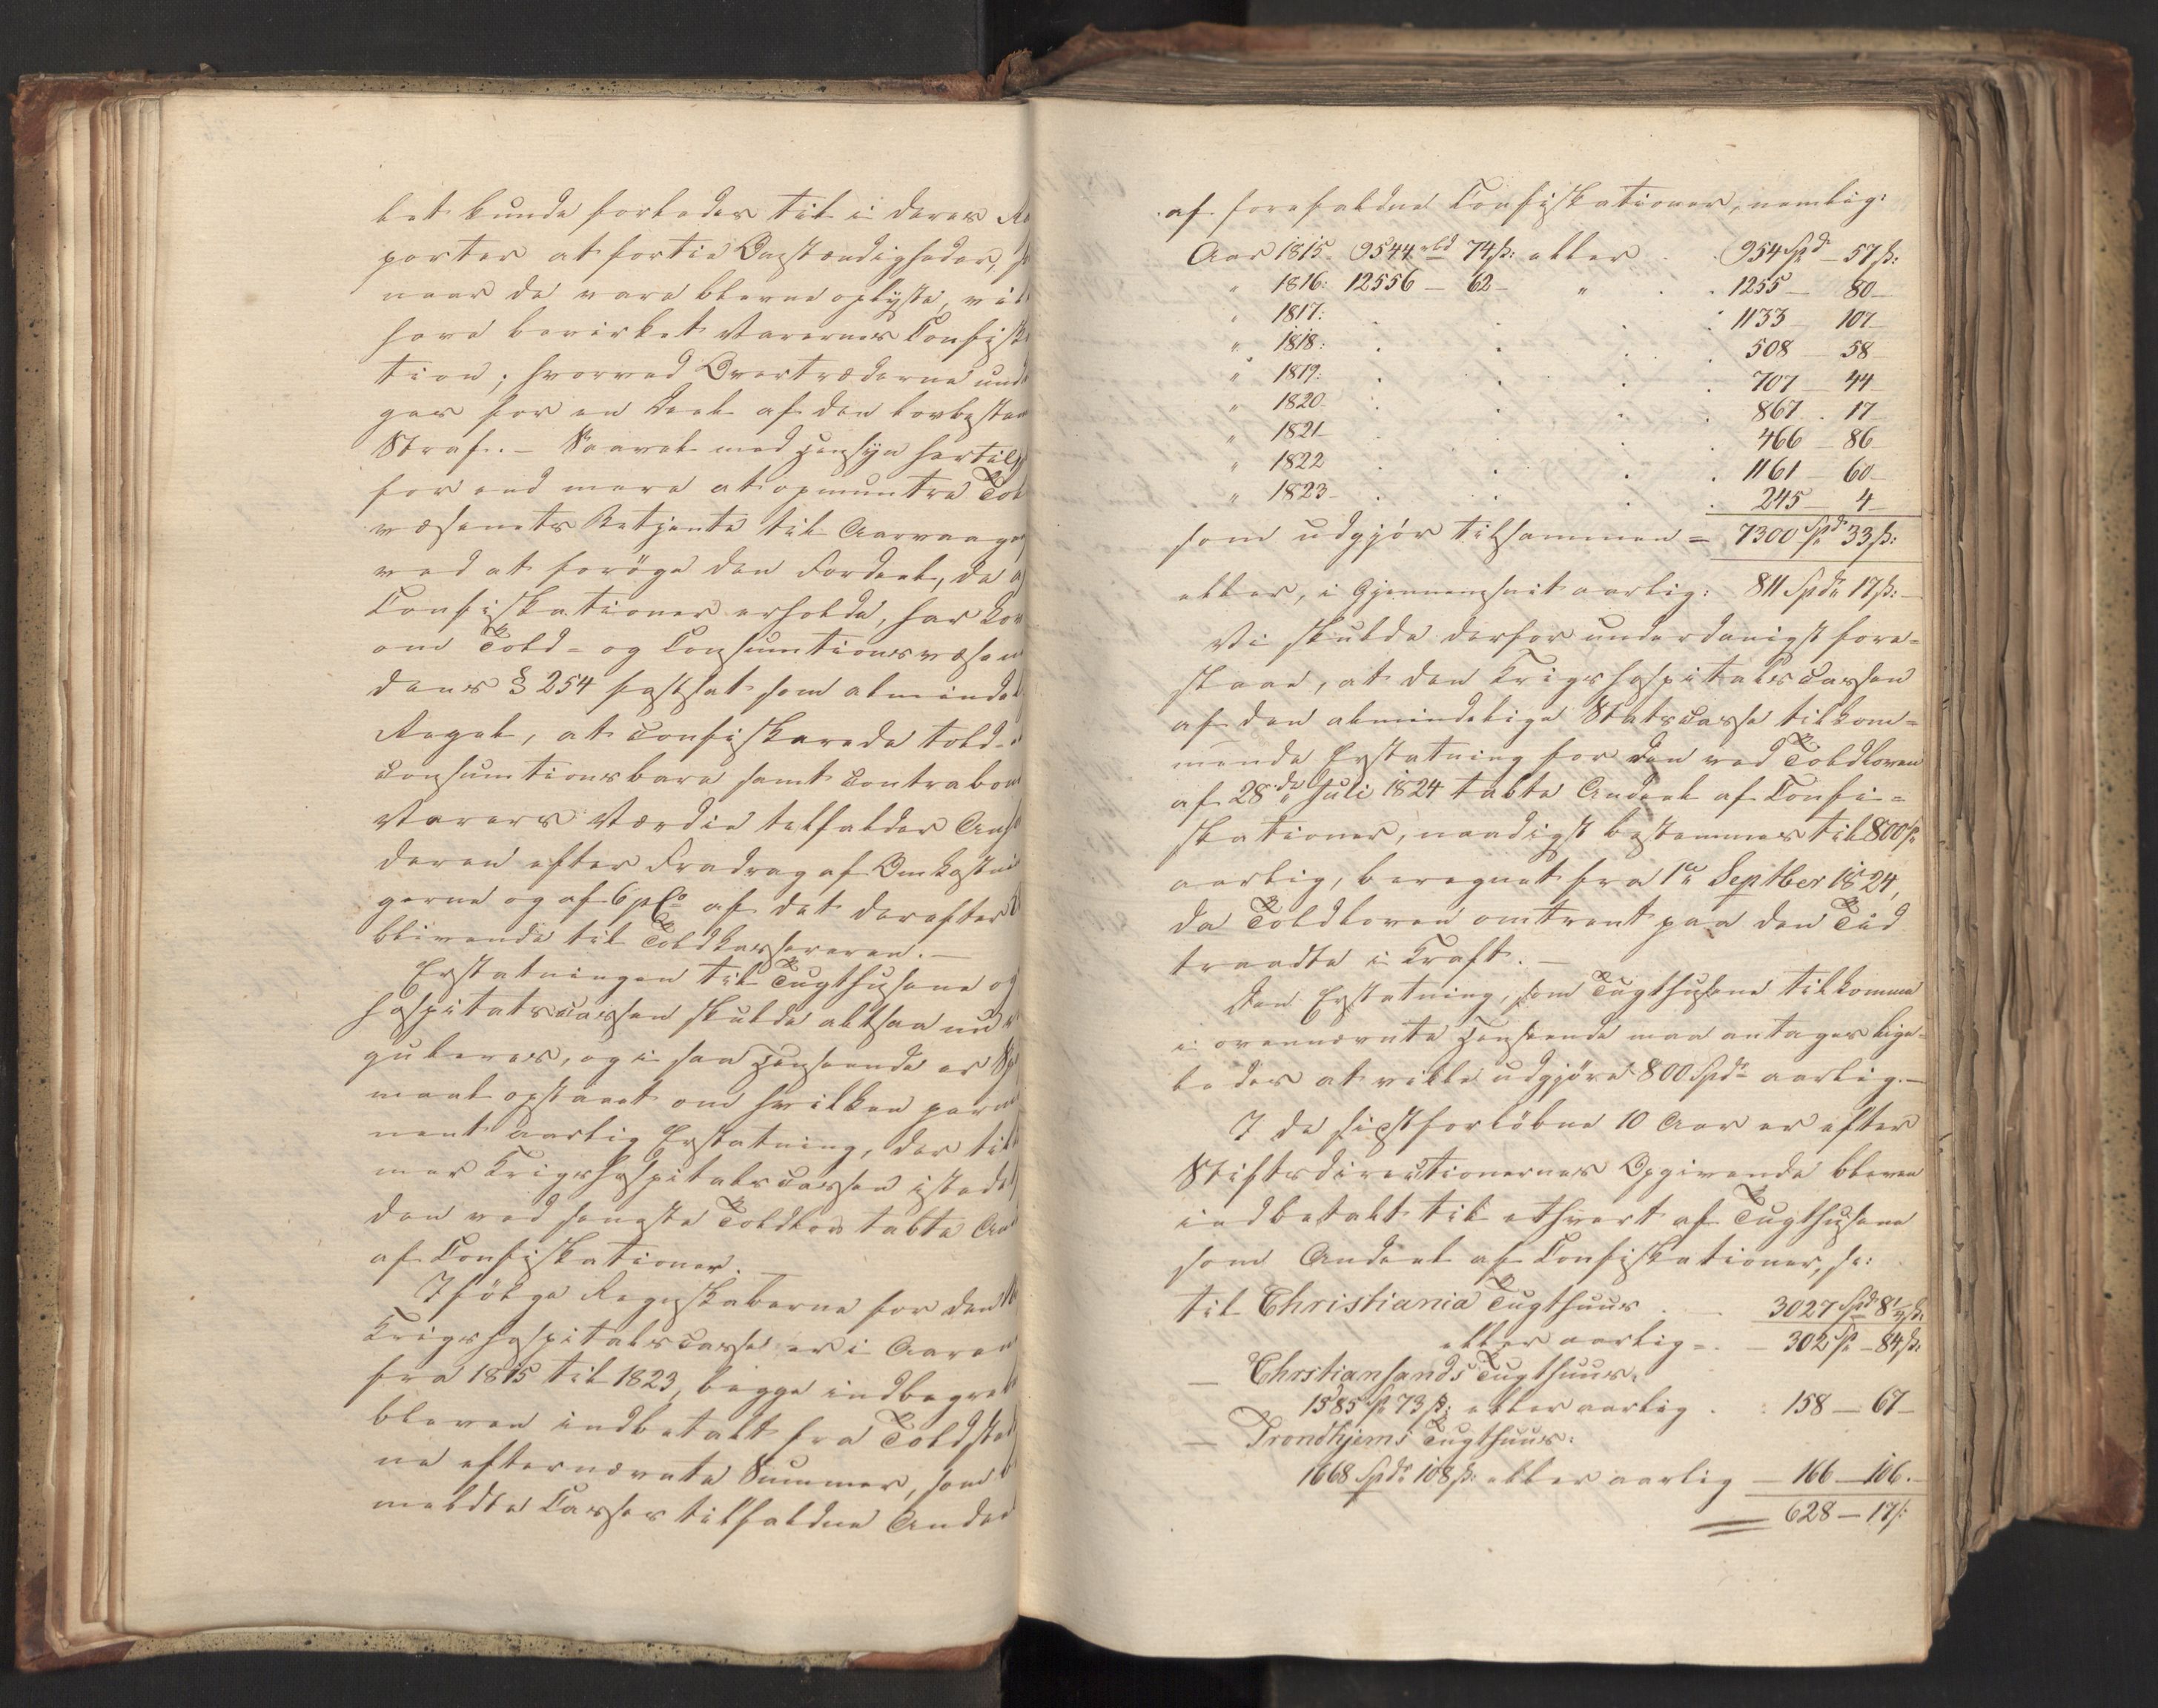 let kunde forledes til i deres Ra
porter at fortie Omstændigheder, s
naar de vare blevne oplyste, vil
have bevirket Varernes Confisk
tion; hvorved Overtræderne und
gaar for en Deel af den lovbestem
Straf. – Saavel med Hensyn hertil,
for end mere at opmuntre Tol
væsenets Betjente til Aarvaagen
ved at forøge den Fordeel, de a
Confiskationer erholde, har Lov
om Told- og Consumtionsvæsen
dens § 254 fastsat som almindel
Regel, at confiskerede told-
consumtionsbare samt contraban
Varers Værdie tilfalder Anh
deren efter Fradrag af Omkostni
gerne og af 6 pCo af det derefter
blivende til Toldkassereren. –
Erstatningen til Tugthusene og
hospitalscassen skulde altsaa nu
guleres, og i saa Henseende er Sp
maal opstaaet om hvilken perm
nent aarlig Erstatning, der til
mer Krigshospitalscassen istedet
den ved seneste Toldlov tabte An
af Confiskationer. –
Ifølge Regnskaberne for den
Krigshospitalscasse er i Aaren
fra 1815 til 1823, begge indbegre
bleven indbetalt fra Toldsted
ne efternævnte Summer, som
meldte Casses tilfaldne Andee
af forefaldne Confiskationer, nemlig:
Aar 1815. 9544 rbd 74 ß: eller . . 954 Spd – 57 ß:
" 1816: 12556 – 62 – " . . 1255 – 80 –
" 1817: . . . : 1133 – 107 –
" 1818: . . . . 508 – 58 –
" 1819: . . . . 707 – 44 –
" 1820 – . . . . 867 . 17 –
" 1821 – . . . . 466 – 86 –
" 1822 . . . . 1161 – 60 –
" 1823 – . . . . 245 – 4 –
som udgjør tilsammen = 7300 Spd 33 ß:
eller, i Gjennemsnit aarlig: 811 Spd 17 ß: –
Vi skulde derfor underdanigst fore-
slaae, at den Krigshospitalscassen
af den almindelige Statscasse tilkom-
mende Erstatning for den ved Toldloven
af 28de Juli 1824 tabte Andeel af Confi-
skationer, naadigst bestemmes til 800 Sp
aarlig, beregnet fra 1ste Septber 1824,
da Toldloven omtrent paa den Tid
traadte i Kraft. –
Den Erstatning, som Tugthusene tilkomme
i ovennævnte Henseende maa antages lige-
ledes at ville udgjøre 800 Spd aarlig. –
I de sidstforløbne 10 Aar er efter
Stiftsdirectionernes Opgivende bleven
indbetalt til ethvert af Tugthusene
som Andeel af Confiskationer, se:
til Christiania Tugthuus . . 3027 Spd 8 1/2 ß:
eller aarlig = . – 302 Sp – 84 ß:
– Chrstiansands Tugthuus:
1585 Sp 73 ß: eller aarlig . . 158 – 67 –
– Trondhjems Tugthuus:
1668 Spd 108 ß: eller aarlig – 166 – 106. –
628 – 17 ß: